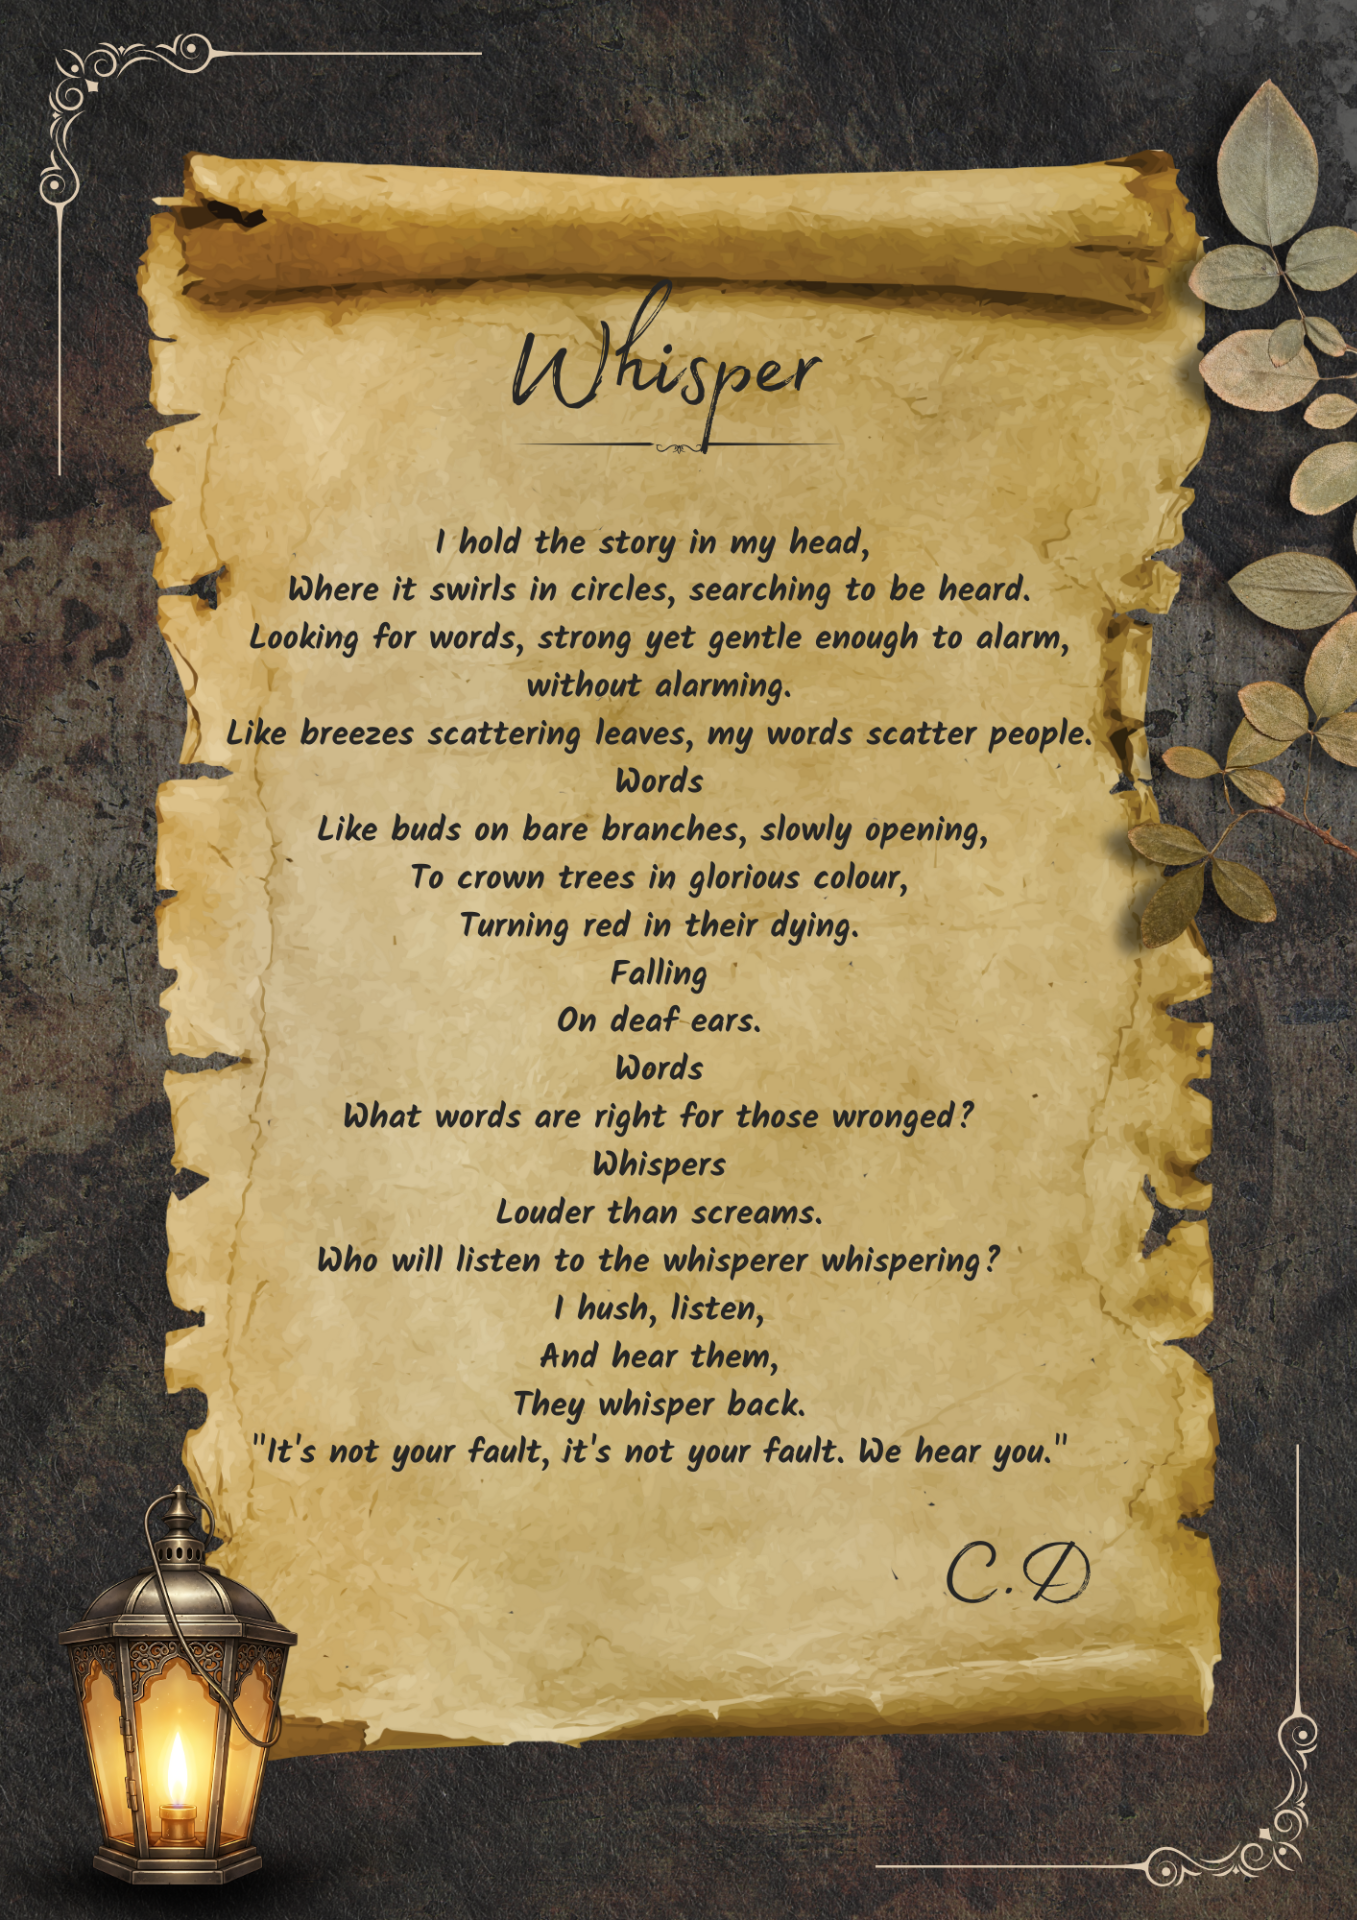 Whisper
I hold the story in my head,
Where it swirls in circles, searching to be heard.
Looking for words, strong yet gentle enough to alarm,
without alarming.
Like breezes scattering leaves, my words scatter people.
Words
Like buds on bare branches, slowly opening,
To crown trees in glorious colour,
Turning red in their dying.
Falling
On deaf ears.
Words
What words are right for those wronged?
Whispers
Louder than screams.
Who will listen to the whisperer whispering?
I hush, listen,
And hear them,
They whisper back.
"It's not your fault, it's not your fault. We hear you."
C.D